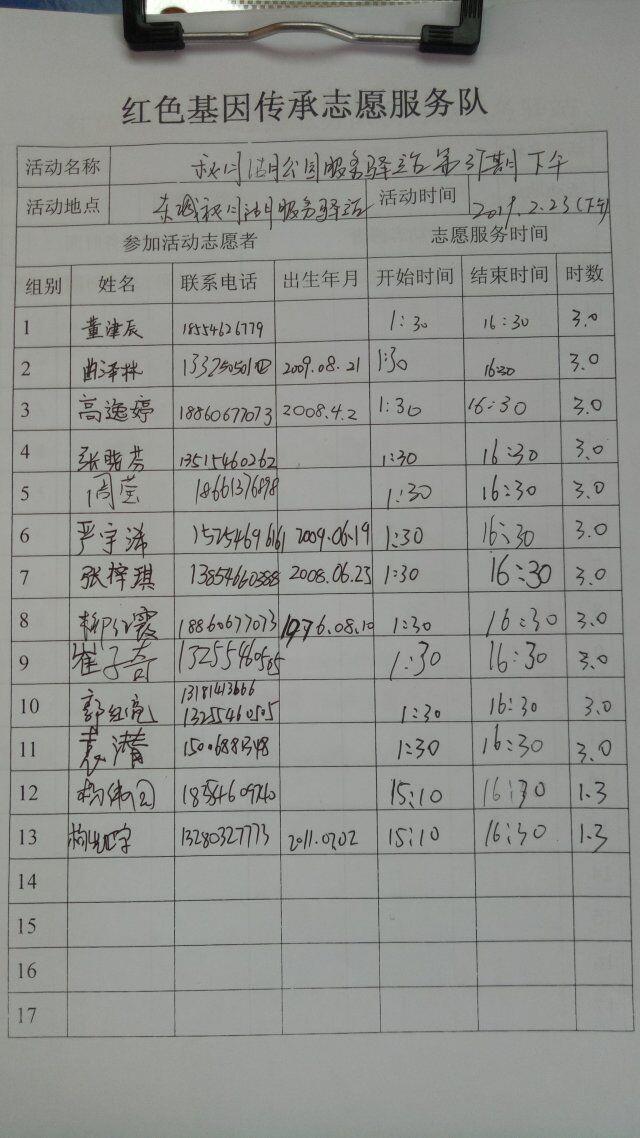 红色基因传承志愿服务队
活动名称 秋月湖公园服务驿站第31期下午
活动地点 东城秋月湖服务驿站 活动时间 2019.2.23(下午)
参加活动志愿者 志愿服务时间
组别 姓名 联系电话 出生年月 开始时间 结束时间 时数
1 董津辰 18554626779 1:30 16:30 3.0
2 曲泽林 2009.08.21 1:30 16:30 3.0
3 高逸婷 18860677073 2008.4.2 1:30 16:30 3.0
4 张晓芬 13515460262 1:30 16:30 3.0
5 周莹 18661376898 1:30 16:30 3.0
6 严宇浠 15254696161 2009.06.19 1:30 16:30 3.0
7 张梓琪 13854660388 2008.06.23 1:30 16:30 3.0
8 柳红霞 18860677073 1976.08.10 1:30 16:30 3.0
9 崔子奇 13255460505 1:30 16:30 3.0
10 郭红亮 13181413666 1:30 16:30 3.0
13255460505
11 袁潇 1:30 16:30 3.0
12 15:10 16:30 1.3
13 13280327773 2011.07.02 15:10 16:30 1.3
14
15
16
17